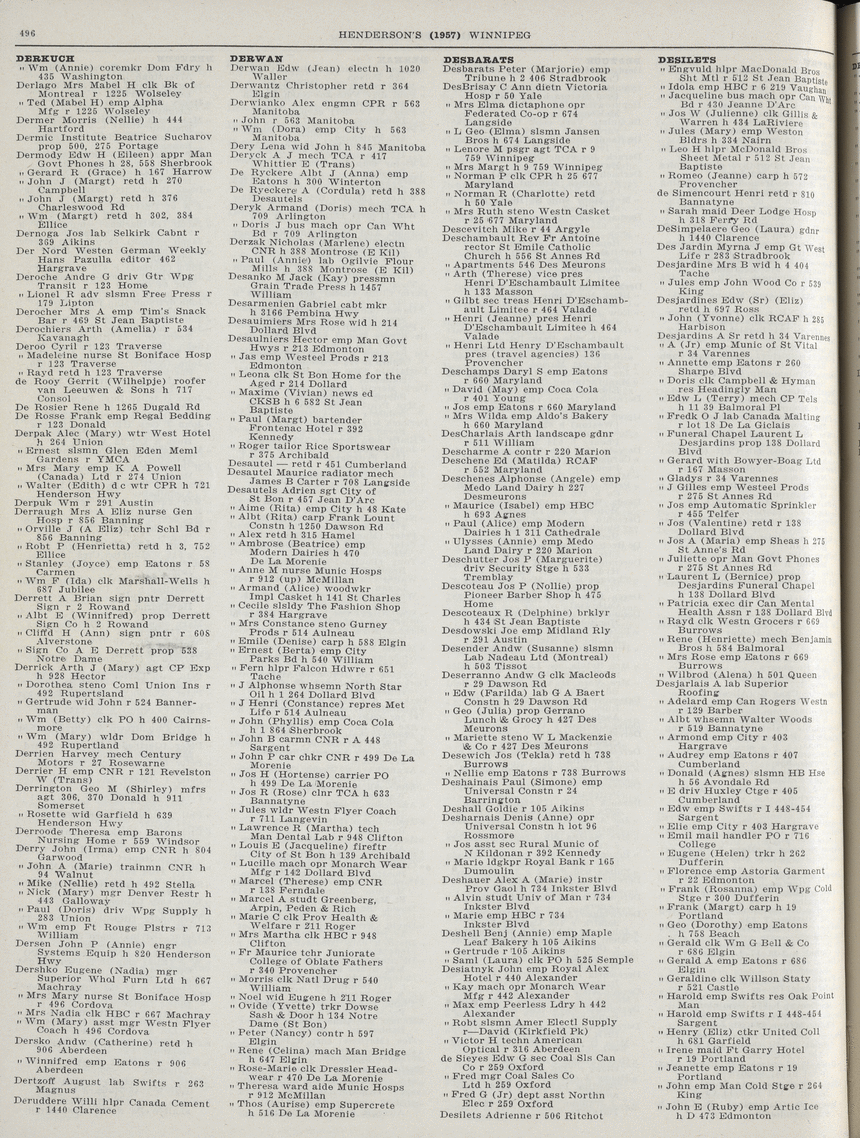 496
HENDERSON'S (1957) WINNIPEG
DERKUCH
" Wm (Annie) coremkr Dom Fdry h
435 Washington
Derlago Mrs Mabel H clk Bk of
Montreal r 1225 Wolseley
" Ted (Mabel H) emp Alpha
Mfg r 1225 Wolseley
Dermer Morris (Nellie) h 444
Hartford
Dermic Institute Beatrice Sucharov
prop 500, 275 Portage
Dermody Edw H (Eileen) appr Man
Govt Phones h 28, 558 Sherbrook
" Gerard R (Grace) h 167 Harrow
" John J (Margt) retd h 270
Campbell
" John J (Margt) retd h 376
Charleswood Rd
" Wm (Margt) retd h 302, 384
Ellice
Dernoga Jos lab Selkirk Cabnt r
369 Aikins
Der Nord Westen German Weekly
Hans Pazulla editor 462
Hargrave
Deroche Andre G driv Gtr Wpg
Transit r 123 Home
" Lionel R adv slsmn Free Press r
179 Lipton
Derocher Mrs A emp Tim's Snack
Bar r 469 St Jean Baptiste
Derochiers Arth (Amelia) r 534
Kavanagh
Deroo Cyril r 123 Traverse
" Madeleine nurse St Boniface Hosp
r 123 Traverse
" Rayd retd h 123 Traverse
de Rooy Gerrit (Wilhelpje) roofer
van Leeuwen & Sons h 717
Consol
De Rosier Rene h 1265 Dugald Rd
De Rosse Frank emp Regal Bedding
r 123 Donald
Derpak Alec (Mary) wtr West Hotel
h 264 Union
" Ernest slsmn Glen Eden Meml
Gardens r YMCA
" Mrs Mary emp K A Powell
(Canada) Ltd r 274 Union
" Walter (Edith) d c wtr CPR h 721
Henderson Hwy
Derpuk Wm r 291 Austin
Derraugh Mrs A Eliz nurse Gen
Hosp r 856 Banning
" Orville J (A Eliz) tchr Schl Bd r
856 Banning
" Robt P (Henrietta) retd h 3, 752
Ellice
" Stanley (Joyce) emp Eatons r 58
Carmen
" Wm F (Ida) clk Marshall-Wells h
687 Jubilee
Derrett A Brian sign pntr Derrett
Sign r 2 Rowand
" Albt E (Winnifred) prop Derrett
Sign Co h 2 Rowand
" Cliffd H (Ann) sign pntr r 608
Alverstone
" Sign Co A E Derrett prop 538
Notre Dame
Derrick Arth J (Mary) agt CP Exp
h 928 Hector
" Dorothea steno Coml Union Ins r
492 Rupertsland
" Gertrude wid John r 524 Banner-
man
" Wm (Betty) clk PO h 400 Cairns-
more
" Wm (Mary) wldr Dom Bridge h
492 Rupertland
Derrien Harvey mech Century
Motors r 27 Rosewarne
Derrier H emp CNR r 121 Revelston
W (Trans)
Derrington Geo M (Shirley) mfrs
agt 306, 370 Donald h 911
Somerset
" Rosette wid Garfield h 639
Henderson Hwy
Derroode Theresa emp Barons
Nursing Home r 559 Windsor
Derry John (Irma) emp CNR h 804
Garwood
" John A (Marie) trainmn CNR h
94 Walnut
" Mike (Nellie) retd h 492 Stella
" Nick (Mary) mgr Denver Restr h
443 Galloway
" Paul (Doris) driv Wpg Supply h
283 Union
" Wm emp Ft Rouge Plstrs r 713
William
Dersen John P (Annie) engr
Systems Equip h 820 Henderson
Hwy
Dershko Eugene (Nadia) mgr
Superior Whol Furn Ltd h 667
Machray
" Mrs Mary nurse St Boniface Hosp
r 496 Cordova
" Mrs Nadia clk HBC r 667 Machray
" Wm (Mary) asst mgr Westn Flyer
Coach h 496 Cordova
Dersko Andw (Catherine) retd h
906 Aberdeen
" Winnifred emp Eatons r 906
Aberdeen
Dertzoff August lab Swifts r 263
Magnus
Deruddere Willi hlpr Canada Cement
r 1440 Clarence
DERWAN
Derwan Edw (Jean) electn h 1020
Waller
Derwantz Christopher retd r 364
Elgin
Derwianko Alex engmn CPR r 563
Manitoba
" John r 563 Manitoba
" Wm (Dora) emp City h 563
Manitoba
Dery Lena wid John h 845 Manitoba
Deryck A J mech TCA r 417
Whittier E (Trans)
De Ryckere Albt J (Anna) emp
Eatons h 300 Winterton
De Ryckere A (Cordula) retd h 388
Desautels
Deryk Armand (Doris) mech TCA h
709 Arlington
" Doris J bus mach opr Can Wht
Bd r 709 Arlington
Derzak Nicholas (Marlene) electn
CNR h 388 Montrose (E Kil)
" Paul (Annie) lab Ogilvie Flour
Mills h 388 Montrose (E Kil)
Desanko M Jack (Kay) pressmn
Grain Trade Press h 1457
William
Desarmenien Gabriel cabt mkr
h 3166 Pembina Hwy
Desauimiers Mrs Rose wid h 214
Dollard Blvd
Desaulniers Hector emp Man Govt
Hwys r 213 Edmonton
" Jas emp Westeel Prods r 213
Edmonton
" Leona clk St Bon Home for the
Aged r 214 Dollard
" Maxime (Vivian) news ed
CKSB h 6 582 St Jean
Baptiste
" Paul (Margt) bartender
Frontenac Hotel r 392
Kennedy
" Roger tailor Rice Sportswear
r 375 Archibald
Desautel — retd r 451 Cumberland
Desautel Maurice radiator mech
James B Carter r 708 Langside
Desautels Adrien sgt City of
St Bon r 457 Jean D'Arc
" Aime (Rita) emp City h 48 Kate
" Albt (Rita) carp Frank Lount
Constn h 1250 Dawson Rd
" Alex retd h 315 Hamel
" Ambrose (Beatrice) emp
Modern Dairies h 470
De La Morenie
" Anne M nurse Munic Hosps
r 912 (up) McMillan
" Armand (Alice) woodwkr
Impl Casket h 141 St Charles
" Cecile slsldy The Fashion Shop
r 384 Hargrave
" Mrs Constance steno Gurney
Prods r 514 Aulneau
" Emile (Denise) carp h 588 Elgin
" Ernest (Berta) emp City
Parks Bd h 540 William
" Fern hlpr Falcon Hdwre r 651
Tache
" J Alphonse whsemn North Star
Oil h 1 264 Dollard Blvd
" J Henri (Constance) repres Met
Life r 514 Aulneau
" John (Phyllis) emp Coca Cola
h 1 864 Sherbrook
" John B carmn CNR r A 448
Sargent
" John P car chkr CNR r 499 De La
Morenie
" Jos H (Hortense) carrier PO
h 499 De La Morenie
" Jos R (Rose) clnr TCA h 633
Bannatyne
" Jules wldr Westn Flyer Coach
r 711 Langevin
" Lawrence R (Martha) tech
Man Dental Lab r 948 Clifton
" Louis E (Jacqueline) fireftr
City of St Bon h 139 Archibald
" Lucille mach opr Monarch Wear
Mfg r 142 Dollard Blvd
" Marcel (Therese) emp CNR
r 138 Ferndale
" Marcel A studt Greenberg,
Arpin, Peden & Rich
" Marie C clk Prov Health &
Welfare r 211 Roger
" Mrs Martha clk HBC r 948
Clifton
" Fr Maurice tchr Juniorate
College of Oblate Fathers
r 340 Provencher
" Morris clk Natl Drug r 540
William
" Noel wid Eugene h 211 Roger
" Ovide (Yvette) trkr Dowse
Sash & Door h 134 Notre
Dame (St Bon)
" Peter (Nancy) contr h 597
Elgin
" Rene (Celina) mach Man Bridge
h 647 Elgin
" Rose-Marie clk Dressler Head-
wear r 470 De La Morenie
" Theresa ward aide Munic Hosps
r 912 McMillan
" Thos (Aurise) emp Supercrete
h 516 De La Morenie
DESBARATS
Desbarats Peter (Marjorie) emp
Tribune h 2 406 Stradbrook
DesBrisay C Ann dietn Victoria
Hosp r 50 Yale
" Mrs Elma dictaphone opr
Federated Co-op r 674
Langside
" L Geo (Elma) slsmn Jansen
Bros h 674 Langside
" Lenore M psgr agt TCA r 9
759 Winnipeg
" Mrs Margt h 9 759 Winnipeg
" Norman P clk CPR h 25 677
Maryland
" Norman R (Charlotte) retd
h 50 Yale
" Mrs Ruth steno Westn Casket
r 25 677 Maryland
Descevitch Mike r 44 Argyle
Deschambault Rev Fr Antoine
rector St Emile Catholic
Church h 556 St Annes Rd
" Apartments 546 Des Meurons
" Arth (Therese) vice pres
Henri D'Eschambault Limitee
h 133 Masson
" Gilbt sec treas Henri D'Eschamb-
ault Limitee r 464 Valade
" Henri (Jeanne) pres Henri
D'Eschambault Limitee h 464
Valade
" Henri Ltd Henry D'Eschambault
pres (travel agencies) 136
Provencher
Deschamps Daryl S emp Eatons
r 660 Maryland
" David (May) emp Coca Cola
r 401 Young
" Jos emp Eatons r 660 Maryland
" Mrs Wilda emp Aldo's Bakery
h 660 Maryland
DesCharlais Arth landscape gdnr
r 511 William
Descharme A contr r 220 Marion
Deschene Ed (Matilda) RCAF
r 552 Maryland
Deschenes Alphonse (Angele) emp
Medo Land Dairy h 227
Desmeurons
" Maurice (Isabel) emp HBC
h 693 Agnes
" Paul (Alice) emp Modern
Dairies h 1 311 Cathedrale
" Ulysses (Annie) emp Modo
Land Dairy r 220 Marion
Deschutter Jos P (Marguerite)
driv Security Stge h 533
Tremblay
Descoteau Jos P (Nollie) prop
Pioneer Barber Shop h 475
Home
Descoteaux R (Delphine) brklyr
h 434 St Jean Baptiste
Desdowski Joe emp Midland Rly
r 291 Austin
Desender Andw (Susanne) slsmn
Lab Nadeau Ltd (Montreal)
h 503 Tissot
Deserranno Andw G clk Macleods
r 29 Dawson Rd
" Edw (Farilda) lab G A Baert
Constn h 29 Dawson Rd
" Geo (Julia) prop Gerrano
Lunch & Grocy h 427 Des
Meurons
" Mariette steno W L Mackenzie
& Co r 427 Des Meurons
Desewich Jos (Tekla) retd h 738
Burrows
" Nellie emp Eatons r 738 Burrows
Deshainais Paul (Simone) emp
Universal Constn r 24
Barrington
Deshall Goldie r 105 Aikins
Desharnais Denis (Anne) opr
Universal Constn h lot 96
Rossmore
" Jos asst sec Rural Munic of
N Kildonan r 392 Kennedy
" Marie ldgkpr Royal Bank r 165
Dumoulin
Deshauer Alex A (Marie) instr
Prov Gaol h 734 Inkster Blvd
" Alvin studt Univ of Man r 734
Inkster Blvd
" Marie emp HBC r 734
Inkster Blvd
Deshell Benj (Annie) emp Maple
Leaf Bakery h 105 Aikins
" Gertrude r 105 Aikins
" Saml (Laura) clk PO h 525 Semple
Desiatnyk John emp Royal Alex
Hotel r 440 Alexander
" Kay mach opr Monarch Wear
Mfg r 442 Alexander
" Max emp Peerless Ldry h 442
Alexander
" Robt slsmn Amer Electl Supply
r—David (Kirkfield Pk)
" Victor H techn American
Optical r 316 Aberdeen
de Sieyes Edw G sec Coal Sls Can
Co r 259 Oxford
" Fred mgr Coal Sales Co
Ltd h 259 Oxford
" Fred G (Jr) dept asst Northn
Elec r 259 Oxford
Desilets Adrienne r 506 Ritchot
DESILETS
" Engvuld hlpr MacDonald Bros
Sht Mtl r 512 St Jean Baptiste
" Idola emp HBC r 6 219 Vaughan
" Jacqueline bus mach opr Can Wht
Bd r 430 Jeanne D'Arc
" Jos W (Julienne) clk Gillis &
Warren h 434 LaRiviere
" Jules (Mary) emp Weston
Bldrs h 334 Nairn
" Leo H hlpr McDonald Bros
Sheet Metal r 512 St Jean
Baptiste
" Romeo (Jeanne) carp h 572
Provencher
de Simencourt Henri retd r 810
Bannatyne
" Sarah maid Deer Lodge Hosp
h 318 Ferry Rd
DeSimpelaere Geo (Laura) gdnr
h 1440 Clarence
Des Jardin Myrna J emp Gt West
Life r 283 Stradbrook
Desjardine Mrs B wid h 4 404
Tache
" Jules emp John Wood Co r 539
King
Desjardines Edw (Sr) (Eliz)
retd h 697 Ross
" John (Yvonne) clk RCAF h 285
Harbison
Desjardins A Sr retd h 34 Varennes
" A (Jr) emp Munic of St Vital
r 34 Varennes
" Annette emp Eatons r 260
Sharpe Blvd
" Doris clk Campbell & Hyman
res Headingly Man
" Edw L (Terry) mech CP Tels
h 11 39 Balmoral Pl
" Fredk O J lab Canada Malting
r lot 18 De La Giclais
" Funeral Chapel Laurent L
Desjardins prop 138 Dollard
Blvd
" Gerard with Bowyer-Boag Ltd
r 167 Masson
" Gladys r 34 Varennes
" J Gilles emp Westeel Prods
r 275 St Annes Rd
" Jos emp Automatic Sprinkler
r 455 Telfer
" Jos (Valentine) retd r 138
Dollard Blvd
" Jos A (Maria) emp Sheas h 275
St Anne's Rd
" Juliette opr Man Govt Phones
r 275 St Annes Rd
" Laurent L (Bernice) prop
Desjardins Funeral Chapel
h 138 Dollard Blvd
" Patricia exec dir Can Mental
Health Assn r 138 Dollard Blvd
" Rayd clk Westn Grocers r 669
Burrows
" Rene (Henriette) mech Benjamin
Bros h 584 Balmoral
" Mrs Rose emp Eatons r 669
Burrows
" Wilbrod (Alena) h 501 Queen
Desjarlais A lab Superior
Roofing
" Adelard emp Can Rogers Westn
r 129 Barber
" Albt whsemn Walter Woods
r 519 Bannatyne
" Armond emp City r 403
Hargrave
" Audrey emp Eatons r 407
Cumberland
" Donald (Agnes) slsmn HB Hse
h 56 Avondale Rd
" E driv Huxley Ctge r 405
Cumberland
" Edw emp Swifts r I 448-454
Sargent
" Elie emp City r 403 Hargrave
" Emil mail handler PO r 716
College
" Eugene (Helen) trkr h 262
Dufferin
" Florence emp Astoria Garment
r 22 Edmonton
" Frank (Rosanna) emp Wpg Cold
Stge r 300 Dufferin
" Frank (Margt) carp h 19
Portland
" Geo (Dorothy) emp Eatons
h 758 Beach
" Gerald clk Wm G Bell & Co
r 686 Elgin
" Gerald A emp Eatons r 686
Elgin
" Geraldine clk Willson Staty
r 521 Castle
" Harold emp Swifts res Oak Point
Man
" Harold emp Swifts r I 448-454
Sargent
" Henry (Eliz) ctkr United Coll
h 681 Garfield
" Irene maid Ft Garry Hotel
r 19 Portland
" Jeanette emp Eatons r 19
Portland
" John emp Man Cold Stge r 264
King
" John E (Ruby) emp Artic Ice
h D 473 Edmonton